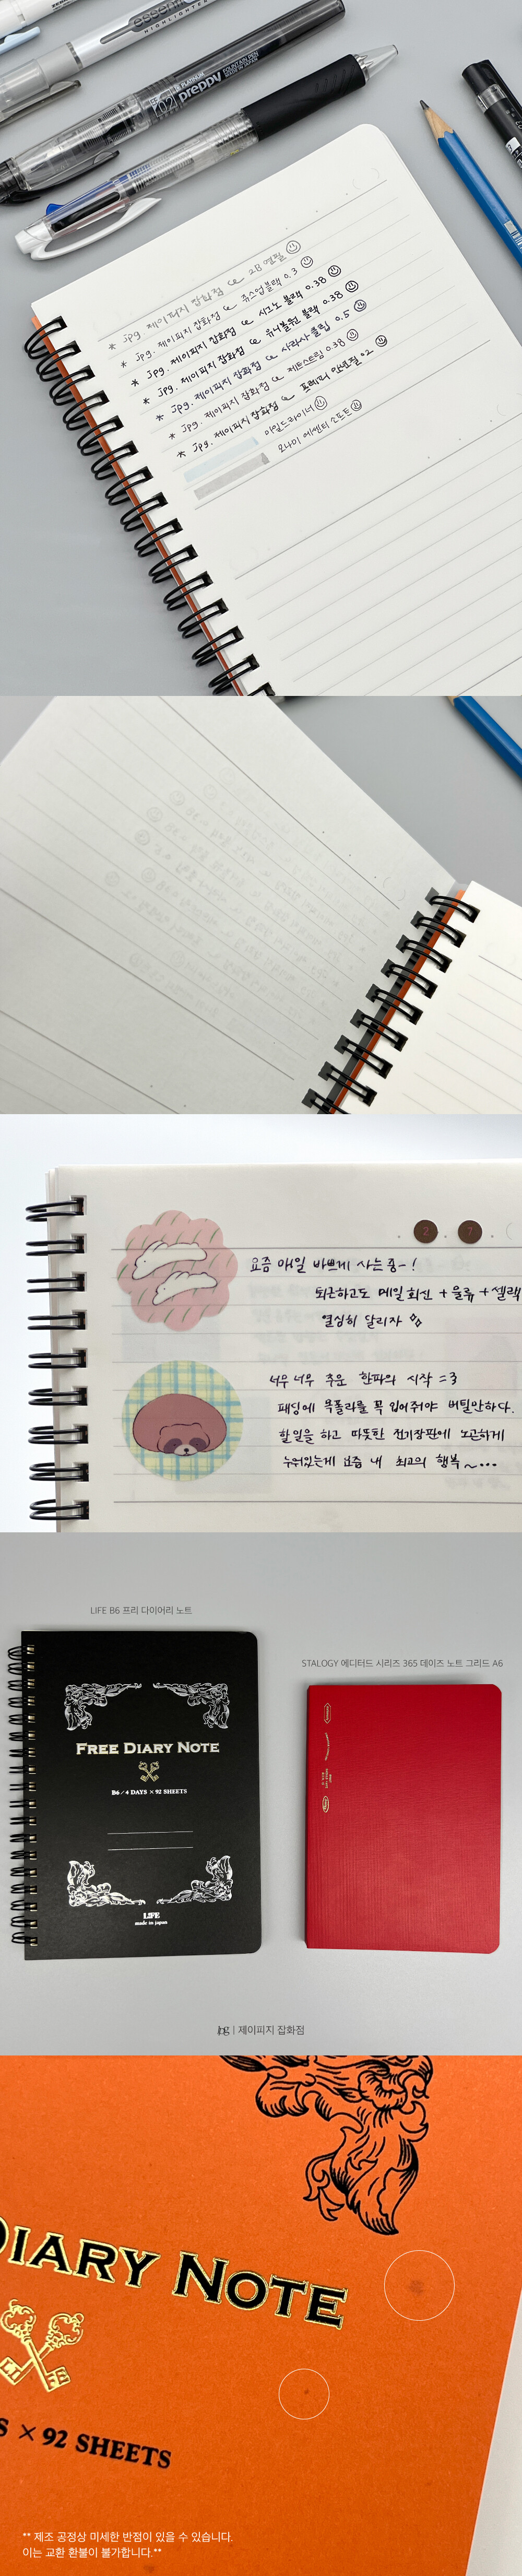 essence
HIGHLIGHTER
02
PLATINUM
preppy
FOUNTAIN PEN
MADE IN JAPAN
* jpg. 제이피지 잡화점 2B 연필
* jpg. 제이피지 잡화점 유스업 블랙 0.3
* jpg. 제이피지 잡화점 시그노 블랙 0.38
* jpg. 제이피지 잡화점 유니볼원 블랙 0.38
* jpg. 제이피지 잡화점 사라사 클립 0.5
* jpg. 제이피지 잡화점 제트스트림 0.38
* jpg. 제이피지 잡화점 프레피 만년필 02
마일드라이너
모나미 에센티 소프트
2 7
요즘 매일 바쁘게 사는 중~!
퇴근하고도 메일 회신 + 물류 + 셀렉
열심히 달리자
너무너무 추운 한파의 시작 =3
패딩에 목폴라를 꼭 입어줘야 버틸만하다.
할일을 하고 따뜻한 전기장판에 노곤하게
누워있는게 요즘 내 최고의 행복~...
LIFE B6 프리 다이어리 노트
STALOGY 에디터드 시리즈 365 데이즈 노트 그리드 A6
FREE DIARY NOTE
B6/4 DAYS × 92 SHEETS
LIFE
made in japan
jpg | 제이피지 잡화점
DIARY NOTE
LIFE
S × 92 SHEETS
** 제조 공정상 미세한 반점이 있을 수 있습니다.
이는 교환 환불이 불가합니다.**